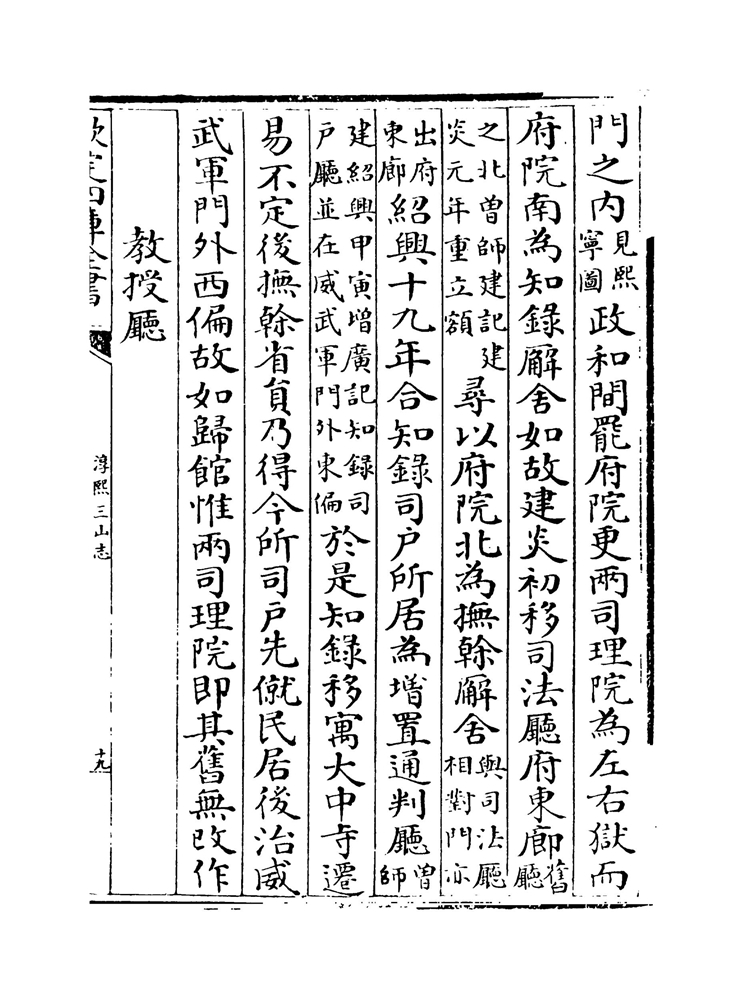 門之内見熙寧圖政和間罷府院更兩司理院為左右獄而
府院南為知錄廨舍如故建炎初移司法廳府東廊舊廳
之北曾師建記建炎元年重立額尋以府院北為撫幹廨舍與司法廳相對門亦
出府東廊紹興十九年合知錄司户所居為增置通判廳曾師
建紹興甲寅增廣記知錄司户廳並在威武軍門外東偏於是知錄移寓大中寺遷
易不定後撫幹省員乃得今所司户先僦民居後治威
武軍門外西偏故如歸館惟兩司理院即其舊無改作
教授廳
欽定四庫全書
淳熙三山志
十九